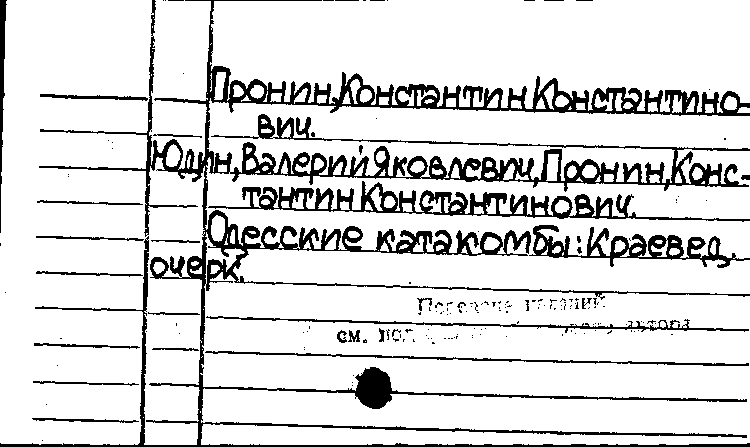 Пронин,Константин Константино-
вич.
Юдин,Валерий Яковлевич,Пронин,Конс-
тантин Константинович.
Одесские катакомбы:Краевед.
очерк.
изданий
см. под автора